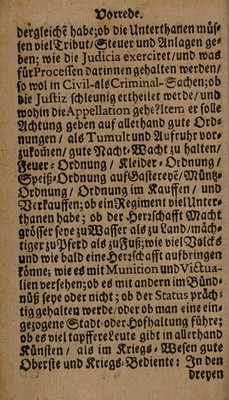 Vorrede.
dergleichẽ habe; ob die Unterthanen müs-
sen viel Tribut/Steuer und Anlagen ge-
ben; wie die Judicia exerciret/und was
für Processen darinnen gehalten werden/
so wol in Civil- als Criminal-Sachen; ob
die Justiz schleunig ertheilet werde/und
wohin die Appellation gehe? Item er solle
Achtung geben auf allerhand gute Ord-
nungen/ als Tumult und Aufruhr vor-
zukom̃en/gute Nacht-Wacht zu halten/
Feuer-Ordnung/ Kleider-Ordnung/
Speiß-Ordnung auf Gastereyẽ/Müntz-
Ordnung/ Ordnung im Kauffen/ und
Verkauffen; ob ein Regiment viel Unter-
thanen habe; ob der Herrschafft Macht
grösser seye zu Wasser als zu Land/mäch-
tiger zu Pferd als zu Fuß; wie viel Volcks
und wie bald eine Herrschafft aufbringen
könne; wie es mit Munition und Victua-
lien versehen; ob es mit andern im Bünd-
nüß seye oder nicht; ob der Status präch-
tig gehalten werde/oder ob man eine ein-
gezogene Stadt- oder Hofhaltung führe;
ob es viel tapffere Leute gibt in allerhand
Künsten/ als im Kriegs-Wesen gute
Oberste und Kriegs-Bediente: In den
dreyen